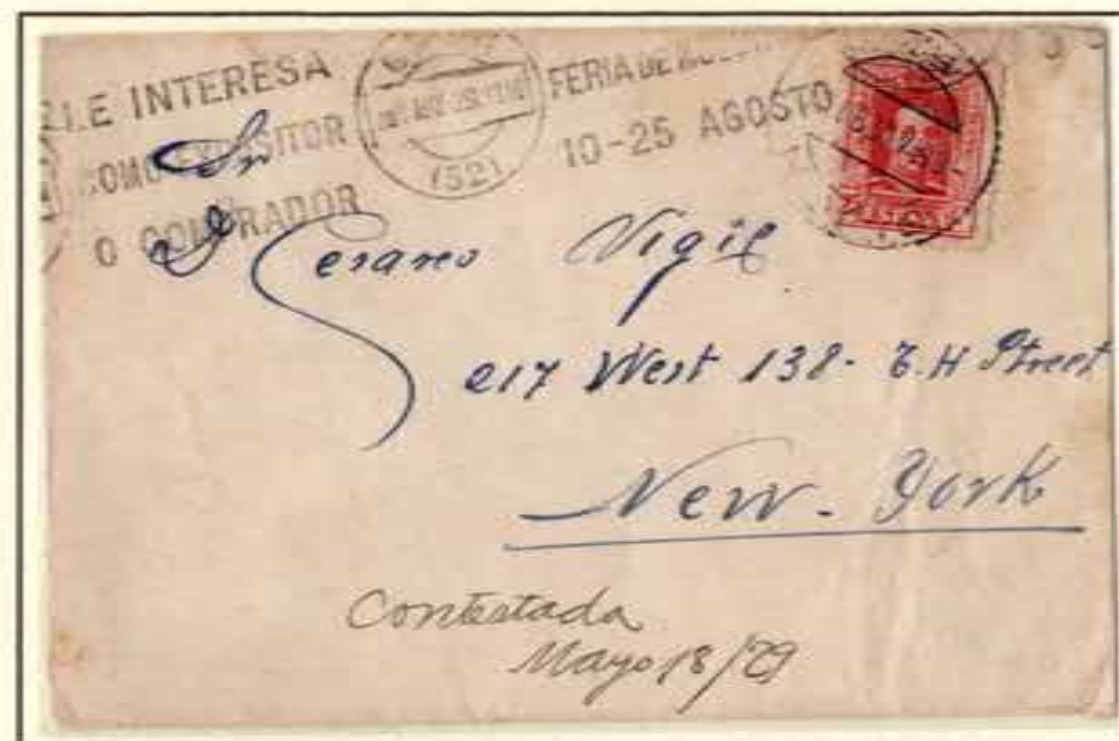 LE INTERESA
COMO EXPOSITOR
O COMPRADOR
(52)
FERIA DE
10-25 AGOSTO
Sr
D Cesareo Vigil
217 West 138- T.H Street
New-York
Contestada
Mayo 18/29